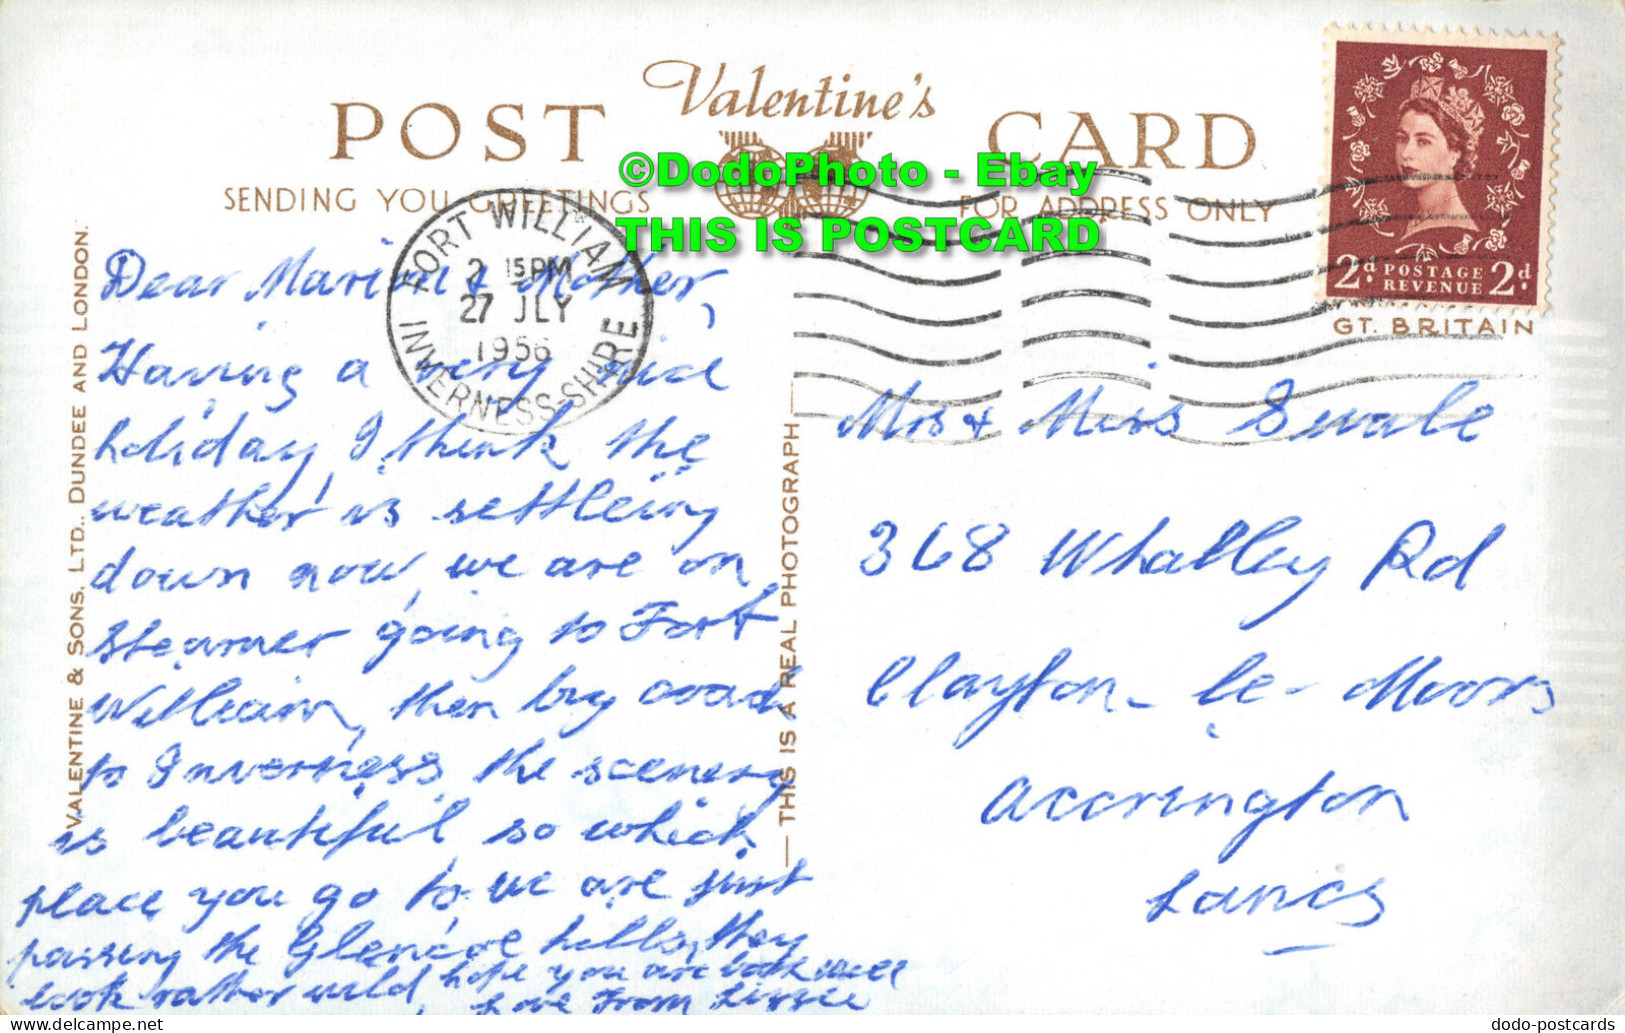 Valentine's
POST CARD
SENDING YOU GREETINGS
FOR ADDRESS ONLY
©DodoPhoto - Ebay
THIS IS POSTCARD
FORT WILLIAM
2 15PM
27 JLY
1956
INVERNESS-SHIRE
2d POSTAGE REVENUE 2d
GT. BRITAIN
VALENTINE & SONS, LTD., DUNDEE AND LONDON.
Dear Marion & Mother,
Having a very nice
holiday, I think the
weather is settleing
down now, we are on
steamer going to Fort
William, then by road
to Inverness, the scenery
is beautiful, so which
place you go to we are just
passing the Glencoe hills, they
look rather wild, hope you are both well
Love from Lizzie
THIS IS A REAL PHOTOGRAPH
Mrs & Miss Swale
368 Whalley Rd
Clayton-le-Moors
Accrington
Lancs
dodo-postcards